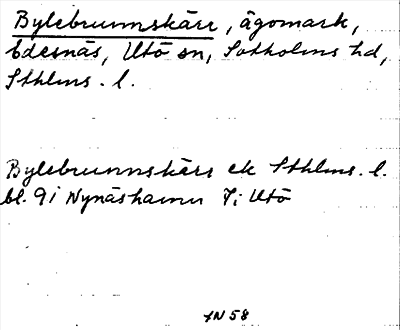 Bylebrunnskärr, ägomark,
Edesnäs, Utö sn, Sotholms hd,
Sthlms. l.
Bylebrunnskärr ek Sthlms. l.
bl. 9i Nynäshamn 7i Utö
IN 58